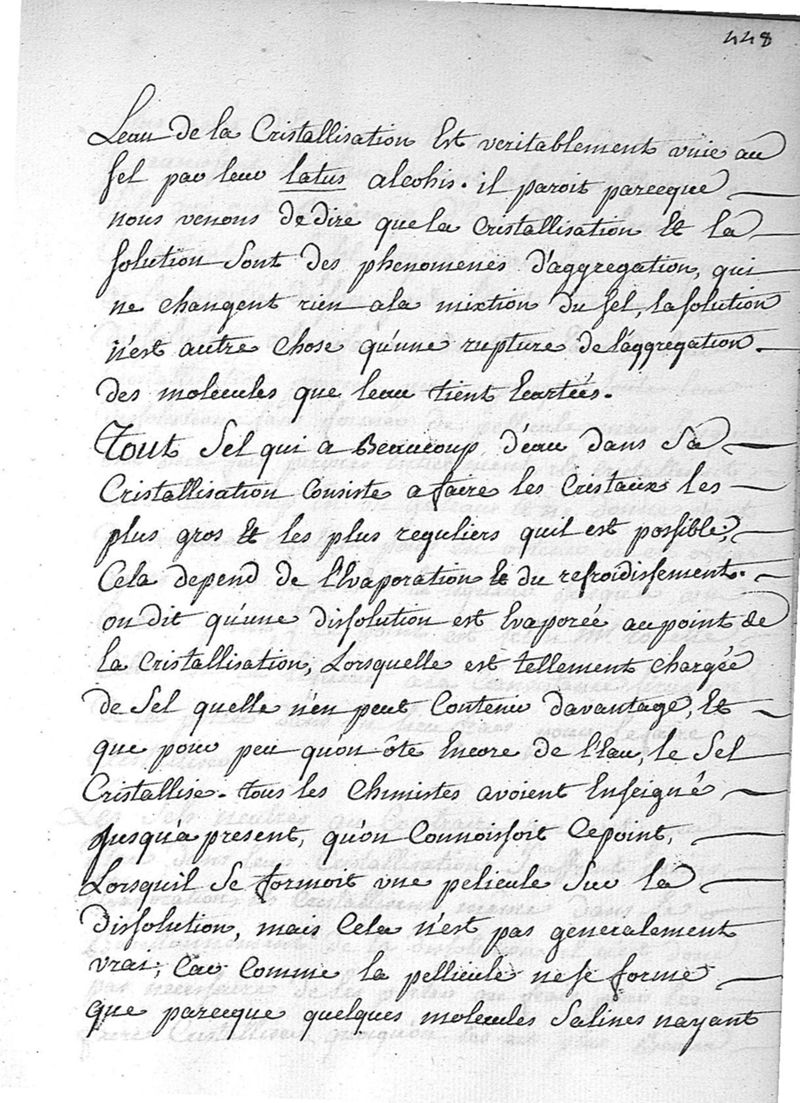 448
Leau de la Cristallisation Est veritablement vnie au
sel par leur latus alcohis. il paroit parceque
nous venons de dire que la cristallisation Et la
solution sont des phenomenes d'aggregation, qui
ne changent rien ala mixtion du sel, la solution
n'est autre chose qu'une rupture de l'aggregation.
des molecules que leau tient Ecartées.
Tout sel qui a Beaucoup d'eau dans sa
Cristallisation Consiste a faire les Cristaux les
plus gros Et les plus reguliers quil est possible;
Cela depend de l'Evaporation Et du refroidissement.
on dit qu'une dissolution est Evaporée au point de
la cristallisation, Lorsquelle est tellement chargée
de sel quelle n'en peut Contenir davantage, Et
que pour peu quon ôte Encore de l'Eau, le sel
Cristallise. tous les chimistes avoient Enseigné
Jusqua present, qu'on Connoissoit Cepoint,
Lorsquil se formoit vne pelicule sur la
dissolution, mais Cela n'est pas generalement
vrai, Car Comme la pellicule ne se forme
que parceque quelques molecules salines nayant